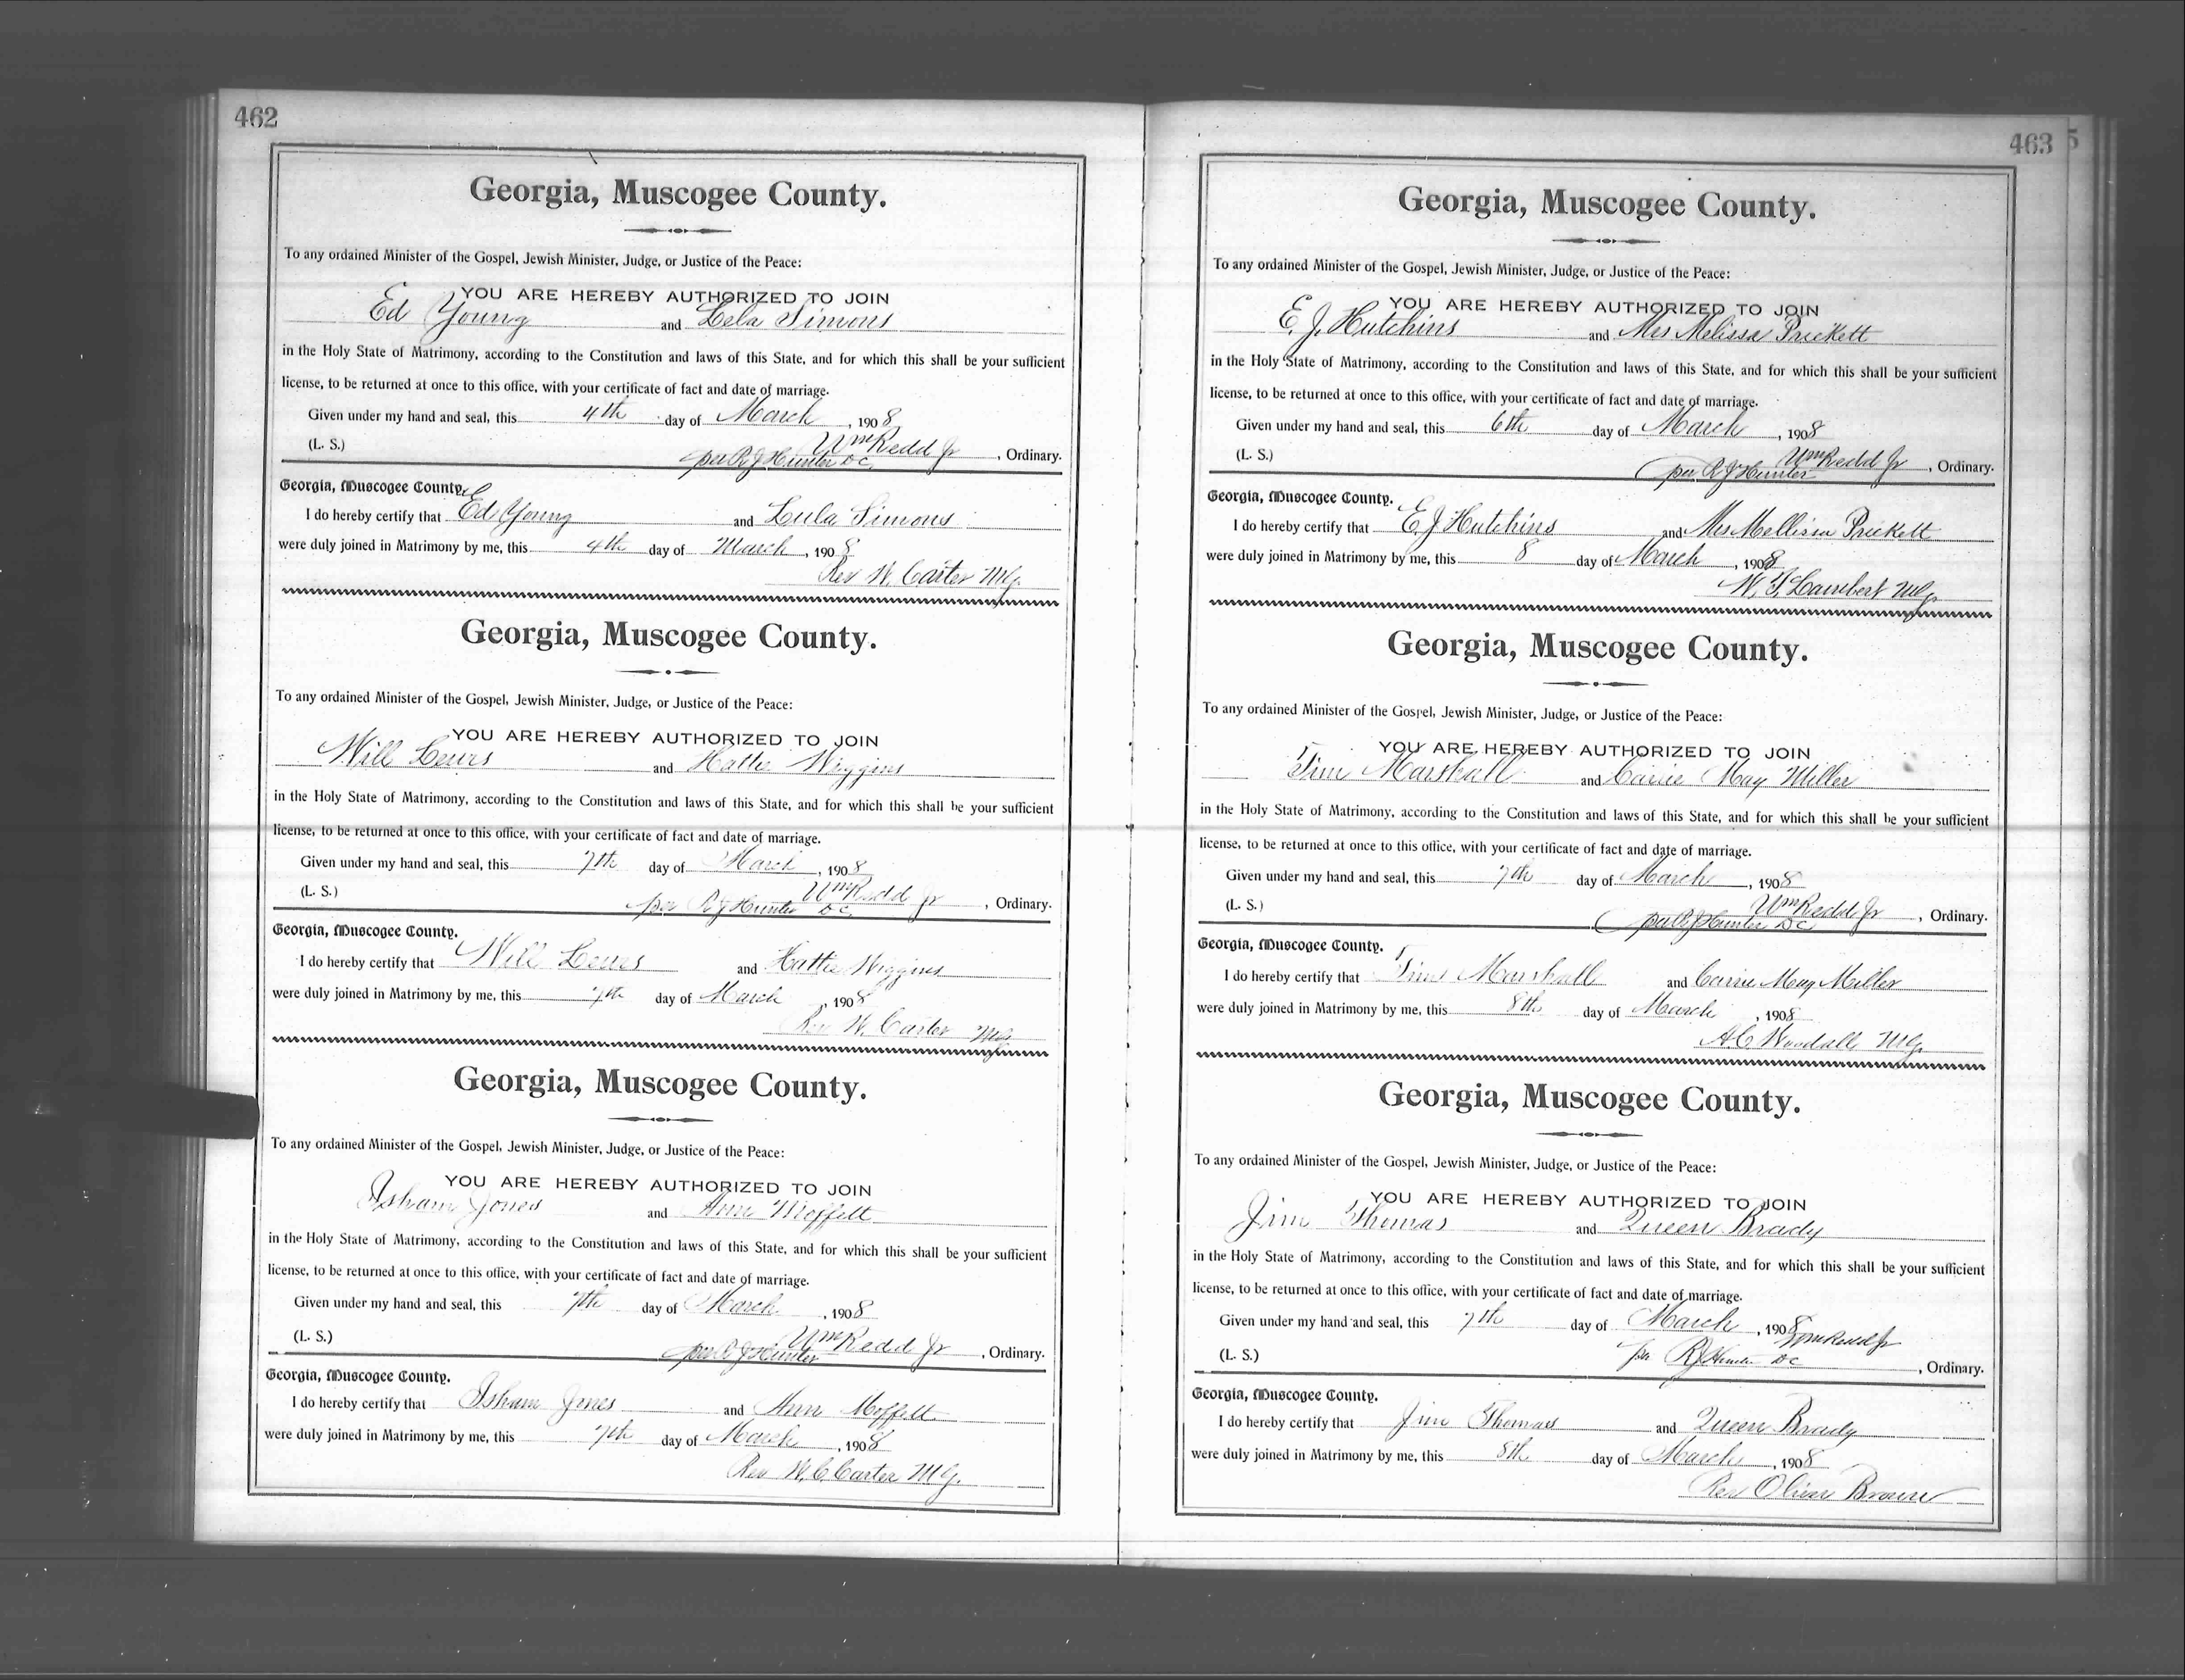 462
Georgia, Muscogee County.
To any ordained Minister of the Gospel, Jewish Minister, Judge, or Justice of the Peace:
YOU ARE HEREBY AUTHORIZED TO JOIN
Ed Young and Lela Simons
in the Holy State of Matrimony, according to the Constitution and laws of this State, and for which this shall be your sufficient
license, to be returned at once to this office, with your certificate of fact and date of marriage.
Given under my hand and seal, this 4th day of March, 1908
(L. S.) Wm Redd Jr, Ordinary.
per R J Hunter DC
Georgia, Muscogee County.
I do hereby certify that Ed Young and Lula Simons
were duly joined in Matrimony by me, this 4th day of March, 1908
Rev W. Carter MG.
Georgia, Muscogee County.
To any ordained Minister of the Gospel, Jewish Minister, Judge, or Justice of the Peace:
YOU ARE HEREBY AUTHORIZED TO JOIN
Will Lewis and Hattie Wiggins
in the Holy State of Matrimony, according to the Constitution and laws of this State, and for which this shall be your sufficient
license, to be returned at once to this office, with your certificate of fact and date of marriage.
Given under my hand and seal, this 7th day of March, 1908
(L. S.) Wm Redd Jr, Ordinary.
per R J Hunter DC
Georgia, Muscogee County.
I do hereby certify that Will Lewis and Hattie Wiggins
were duly joined in Matrimony by me, this 7th day of March, 1908
Rev W. Carter MG
Georgia, Muscogee County.
To any ordained Minister of the Gospel, Jewish Minister, Judge, or Justice of the Peace:
YOU ARE HEREBY AUTHORIZED TO JOIN
Isham Jones and Ann Moffett
in the Holy State of Matrimony, according to the Constitution and laws of this State, and for which this shall be your sufficient
license, to be returned at once to this office, with your certificate of fact and date of marriage.
Given under my hand and seal, this 7th day of March, 1908
(L. S.) Wm Redd Jr, Ordinary.
per R J Hunter
Georgia, Muscogee County.
I do hereby certify that Isham Jones and Ann Moffett
were duly joined in Matrimony by me, this 7th day of March, 1908
Rev W. C. Carter MG.
463
Georgia, Muscogee County.
To any ordained Minister of the Gospel, Jewish Minister, Judge, or Justice of the Peace:
YOU ARE HEREBY AUTHORIZED TO JOIN
E. J. Hutchins and Mrs Melissa Prickett
in the Holy State of Matrimony, according to the Constitution and laws of this State, and for which this shall be your sufficient
license, to be returned at once to this office, with your certificate of fact and date of marriage.
Given under my hand and seal, this 6th day of March, 1908
(L. S.) Wm Redd Jr, Ordinary.
per R J Hunter
Georgia, Muscogee County.
I do hereby certify that E J Hutchins and Mrs Mellissa Prickett
were duly joined in Matrimony by me, this 8 day of March, 1908
Lambert MG
Georgia, Muscogee County.
To any ordained Minister of the Gospel, Jewish Minister, Judge, or Justice of the Peace:
YOU ARE HEREBY AUTHORIZED TO JOIN
Tim Marshall and Carrie May Miller
in the Holy State of Matrimony, according to the Constitution and laws of this State, and for which this shall be your sufficient
license, to be returned at once to this office, with your certificate of fact and date of marriage.
Given under my hand and seal, this 7th day of March, 1908
(L. S.) Wm Redd Jr, Ordinary.
per R J Hunter DC
Georgia, Muscogee County.
I do hereby certify that Tim Marshall and Carrie May Miller
were duly joined in Matrimony by me, this 8th day of March, 1908
A C Woodall MG.
Georgia, Muscogee County.
To any ordained Minister of the Gospel, Jewish Minister, Judge, or Justice of the Peace:
YOU ARE HEREBY AUTHORIZED TO JOIN
Jim Thomas and Queen Brady
in the Holy State of Matrimony, according to the Constitution and laws of this State, and for which this shall be your sufficient
license, to be returned at once to this office, with your certificate of fact and date of marriage.
Given under my hand and seal, this 7th day of March, 1908
Wm Redd Jr
(L. S.) per R J Hunter DC, Ordinary.
Georgia, Muscogee County.
I do hereby certify that Jim Thomas and Queen Brady
were duly joined in Matrimony by me, this 8th day of March, 1908
Rev Oliver Brown